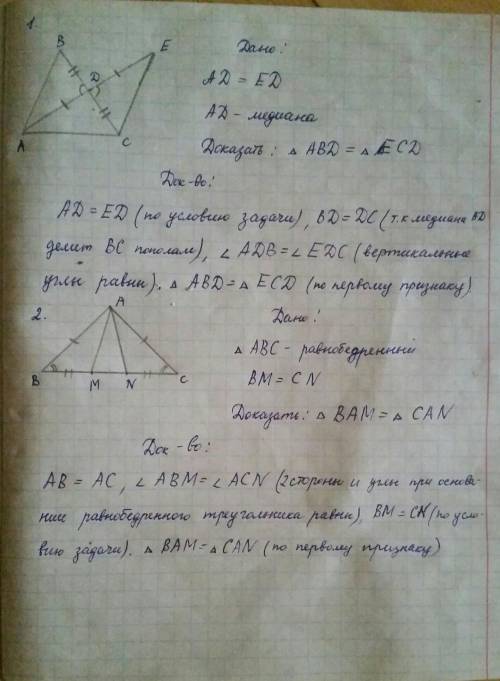 1.
B
E
D
A
C
Дано:
AD = ED
AD - медиана
Доказать: △ ABD = △ ECD
Док-во:
AD = ED (по условию задачи), BD = DC (т.к медиана BD
делит BC пополам), ∠ ADB = ∠ EDC (вертикальные
углы равны). △ ABD = △ ECD (по первому признаку)
2.
A
B
M
N
C
Дано:
△ ABC - равнобедренный
BM = CN
Доказать: △ BAM = △ CAN
Док-во:
AB = AC, ∠ ABM = ∠ ACN (2 стороны и углы при основа-
нии равнобедренного треугольника равны), BM = CN (по усло-
вию задачи). △ BAM = △ CAN (по первому признаку)